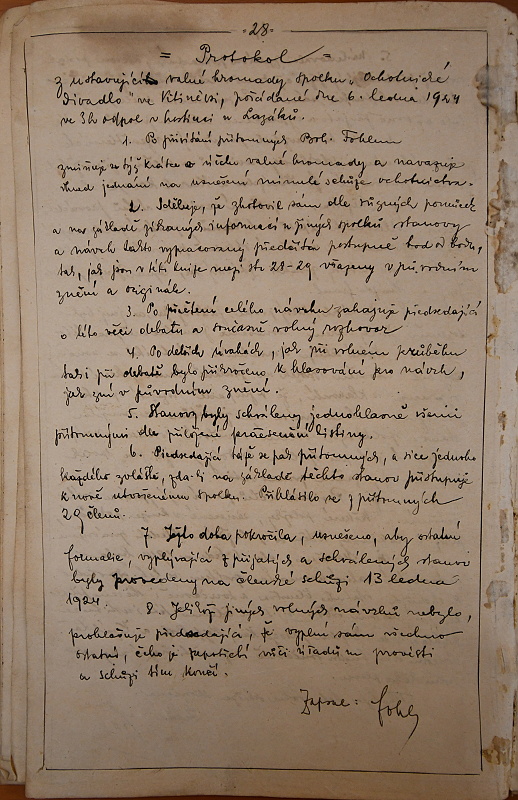 -28-
= Protokol =
z ustavující valné hromady spolku "Ochotnické
divadlo" ve Vitiněvsi, pořádané dne 6. ledna 1924
ve 3h odpol v hostinci u Lazáků.
1. Po přivítání přítomných Boh. Fohlem
zmiňuje se týž krátce o účelu valné hromady a navazuje
ihned jednání na usnesení minulé schůze ochotnictva.
2. Sděluje, že zhotovil sám dle různých pomůcek
a na základě získaných informací u jiných spolků stanovy
a návrh takto vypracovaný předčítá postupně bod od bodu,
tak, jak jsou v této knize mezi str 28-29 všity v původním
znění a originále.
3. Po přečtení celého návrhu zahajuje předsedající
o této věci debatu a současně volný rozhovor
4. Po delších úvahách, jak při volném průběhu
tak i při debatě bylo přikročeno k hlasování pro návrh,
jak zní v původním znění.
5. Stanovy byly schváleny jednohlasně všemi
přítomnými dle přiložené presenční listiny.
6. Předsedající táže se pak přítomných, a sice jednoho
každého zvláště, zda-li na základě těchto stanov přistupuje
k nově utvořenému spolku. Přihlásilo se z přítomných
29 členů.
7. Jelikož doba pokročila, usneseno, aby ostatní
formalie, vyplývající z přijatých a schválených stanov
byly provedeny na členské schůzi 13 ledna
1924.
8. Jelikož jiných volných návrhů nebylo,
prohlašuje předsedající, že vyplní sám všechno
ostatní, čeho je zapotřebí vůči úřadům provésti
a schůzi tím končí.
Zapsal: Fohl